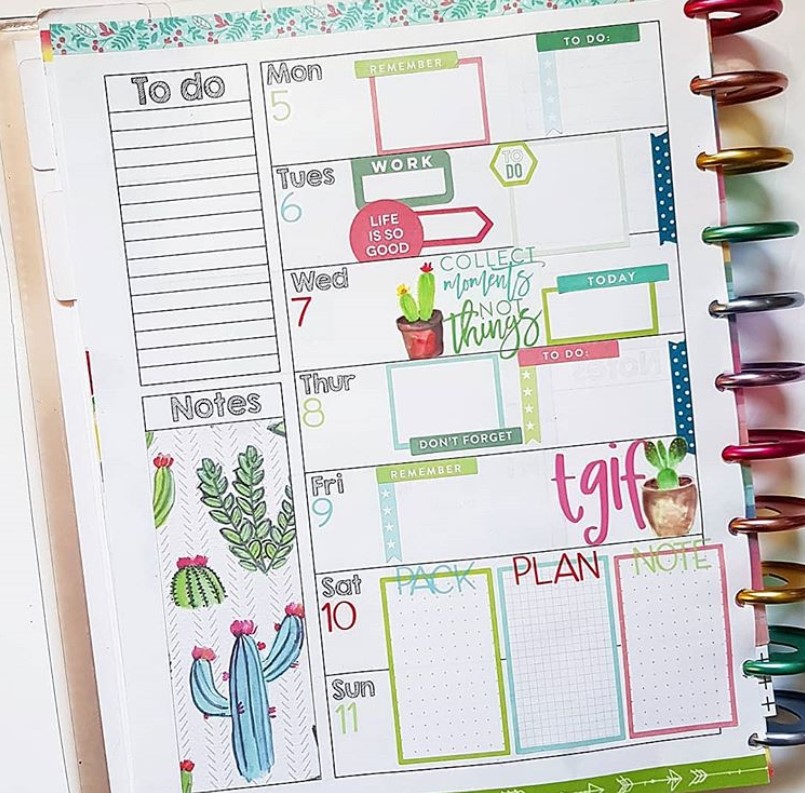 To do
Notes
Mon
5
REMEMBER
TO DO:
Tues
6
WORK
TO
DO
LIFE
IS SO
GOOD
Wed
7
COLLECT
moments
NOT
things
TODAY
Thur
8
DON'T FORGET
TO DO:
Fri
9
REMEMBER
tgif
Sat
10
PACK
PLAN
NOTE
Sun
11